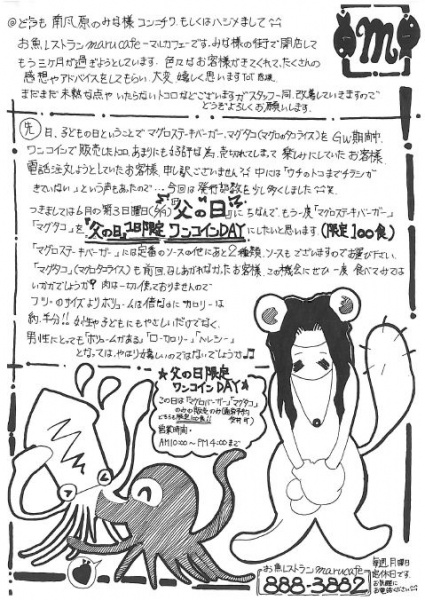 @どうも 南風原のみな様 コンニチワ、もしくはハジメまして
お魚レストラン marucafe-マルカフェ-です。みな様の街で開店して
もう三ヶ月が過ぎようとしています。色々なお客様がきてくれて、たくさんの
感想やアドバイスをしてもらい、大変 嬉しく思います
まだまだ未熟な点や いたらないトコロなどございますが スタッフ一同、改善していきますので
どうぞよろしくお願いします。
m
先日、子どもの日ということで マグロステーキバーガー、マグタコ(マグロのタコライス)を GW期間中、
ワンコインで販売したトコロ、あまりにも好評な為、売切れてしまって 楽しみにしていたお客様、
電話注文しようとしていたお客様、申し訳ございませんでした 中には「ウチのトコまでチラシが
きていない」という声もあったので… 今回は 発行部数を少し多くしました
つきましては6月の第3日曜日(6/19)『父の日』にちなんで、もう一度「マグロステーキバーガー」
「マグタコ」を『父の日』1日限定 ワンコインDAY にしたいと思います(限定100食)
「マグロステーキバーガー」には定番のソースの他にあと2種類、ソースもございますのでお選び下さい。
「マグタコ」(マグロタコライス)も前回、召しあがれなかったお客様、この機会にぜひ一度 食べてみては
いかがでしょうか? 肉は一切使っておりませんので
フツーのタイズよりボリュームは倍なのに カロリーは
約、半分!! 女性や子どもにもやさしいだけでなく、
男性にとっても「ボリュームがある」「ローカロリー」「ヘルシー」
となっては、やはり嬉しいのではないでしょうか♫
★父の日限定★
ワンコインDAY
この日は「マグロバーガー」「マグタコ」
のみの販売のみ
営業時間・
AM10:00〜PM4:00まで
お魚レストラン marucafe
888-3882
毎週、月曜日
店休日です。
お気軽に
お電話ください